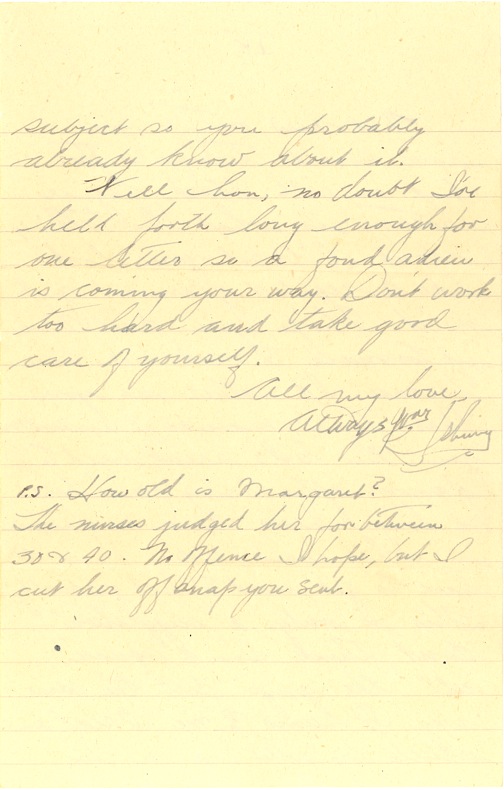 subject so you probably
already know about it.
Well hon, no doubt I've
held forth long enough for
one letter so a fond adieu
is coming your way. Don't work
too hard and take good
care of yourself.
All my love
Always
P.S. How old is Margaret?
The nurses judged her for between
30 & 40. No offence I hope, but I
cut her off snap you sent.